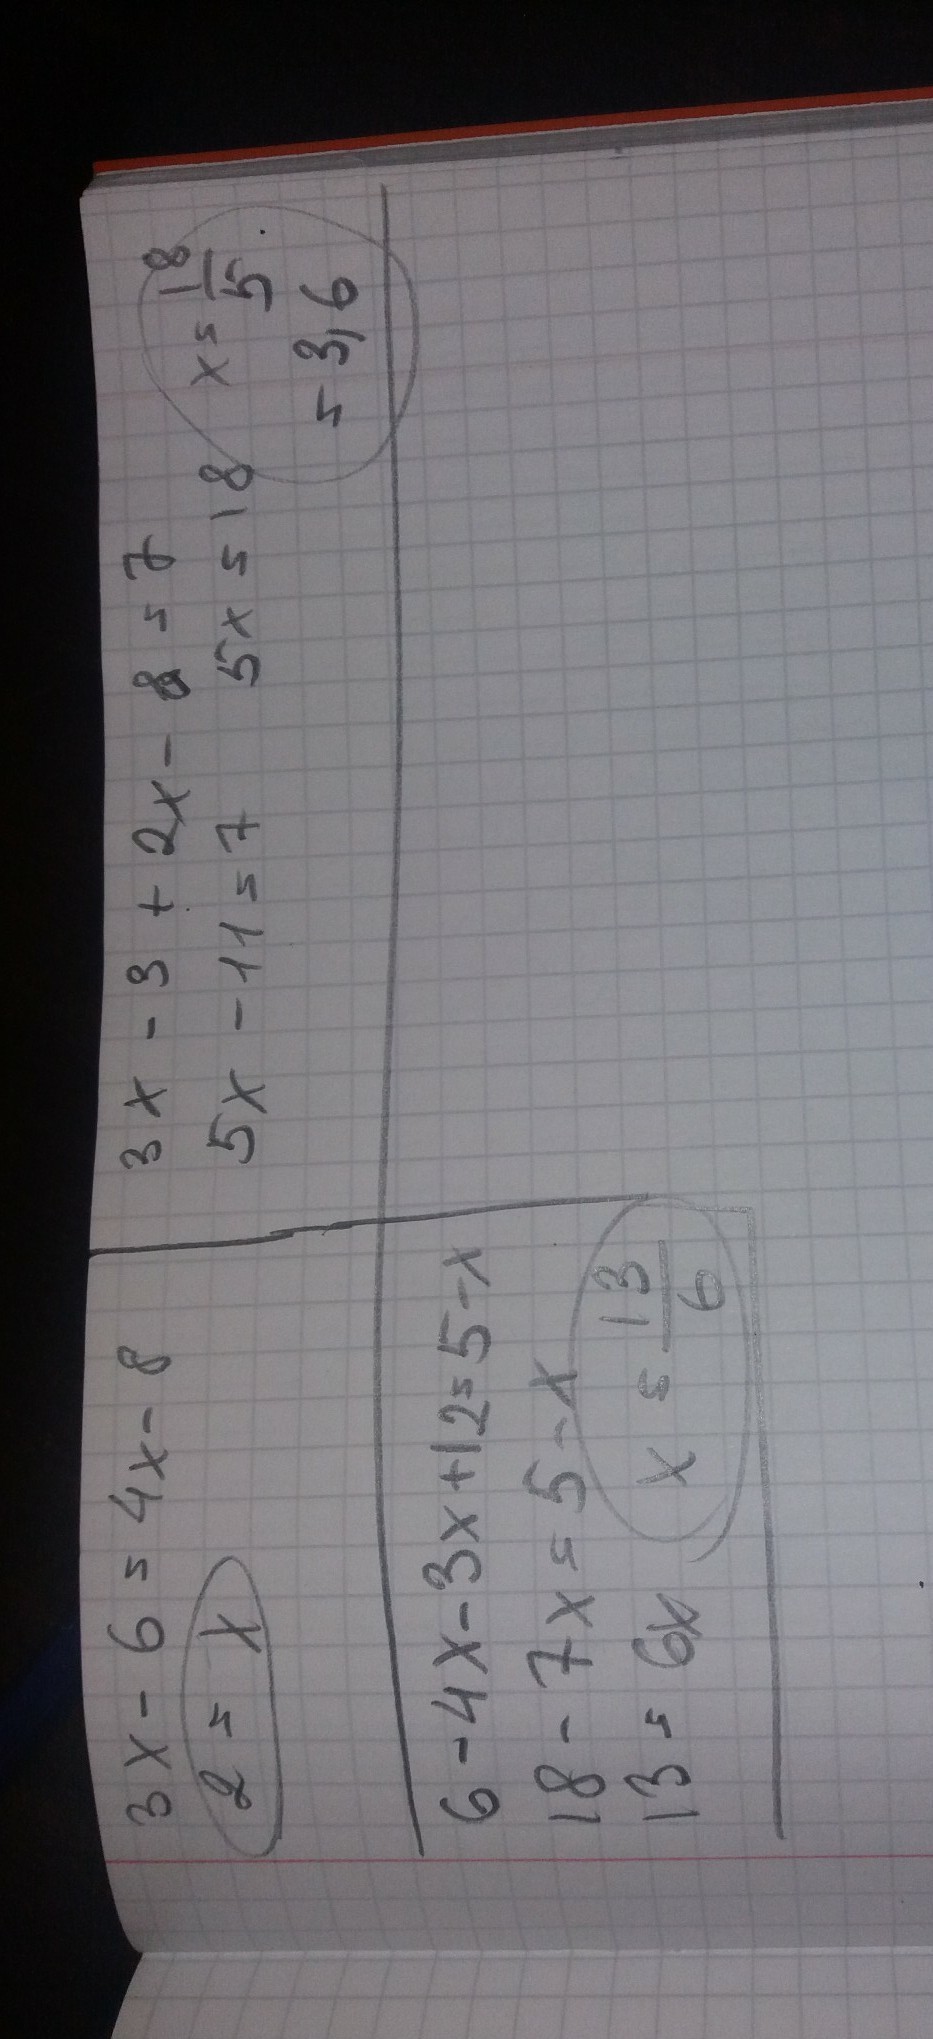 3x - 6 = 4x - 8
2 = x
3x - 3 + 2x - 8 = 7
5x - 11 = 7 5x = 18 x = 18/5
= 3,6
6 - 4x - 3x + 12 = 5 - x
18 - 7x = 5 - x
13 = 6x x = 13/6